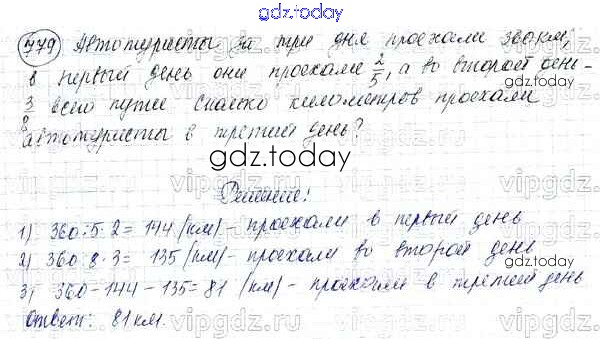 gdz.today
779 Автотуристы за три дня проехали 360 км,
в первый день они проехали 2/5, а во второй день -
3/8 всего пути. Сколько километров проехали
автотуристы в третий день?
gdz.today
Решение:
1) 360:5·2= 144 (км)- проехали в первый день
2) 360:8·3= 135 (км)- проехали во второй день
3) 360-144-135=81 (км)- проехали в третий день
Ответ: 81 км.